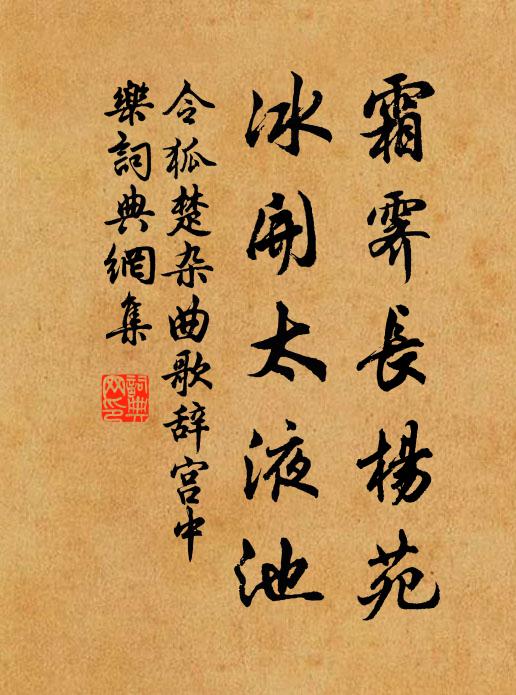 霜霽長楊苑
冰開太液池
令狐楚杂曲歌辞宫中
樂詞典網集
詞典网印